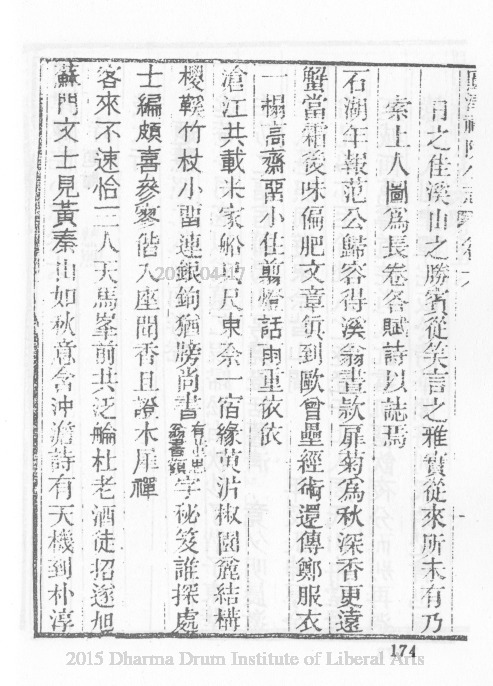 日之佳溪山之勝賓從笑言之雅實從來所未有乃
索上人圖為長卷各賦詩以誌焉
石湖年報范公歸容得溪翁畫款扉菊為秋深香更遠
蟹當霜後味偏肥文章領到歐曾壘經術還傳鄭服衣
一榻高齋畱小住剪燈話雨重依依
滄江共載米家船咫尺東佘一宿緣黃椒園麓結構
椶鞵竹杖小畱連銀鉤猶牓尚書有董思翁書額字祕笈誰探處
士編頗喜參寥偕入座聞香且證木犀禪
客來不速恰三人天馬峯前共泛輪杜老酒徒招遂旭
蘇門文士見黃秦山如秋意含沖澹詩有天機到朴淳
174
2015 Dharma Drum Institute of Liberal Arts